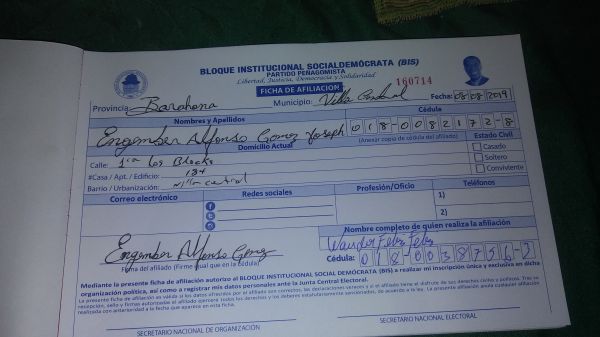 BLOQUE INSTITUCIONAL SOCIALDEMÓCRATA (BIS)
PARTIDO PEÑAGOMISTA
Libertad, Justicia, Democracia y Solidaridad
160714
FICHA DE AFILIACION
Provincia: Barahona Municipio: Villa Central Fecha: 08/08/2019
Nombres y Apellidos Cédula
Engember Alfonso Gomez Joseph 018-0082172-8
(Anexar copia de cédula del afiliado)
Domicilio Actual Estado Civil
Calle: 1ra los Blocks Casado
#Casa / Apt. / Edificio: 134 Soltero
Barrio / Urbanización: Villa Central Conviviente
Correo electrónico Redes sociales Profesión/Oficio Teléfonos
1)
2)
Nombre completo de quien realiza la afiliación
Wander Feliz Feliz
Engember Alfonso Gomez
Cédula: 018-0038756-3
Firma del afiliado (Firme igual que en la cédula)
Mediante la presente ficha de afiliación autorizo el BLOQUE INSTITUCIONAL SOCIALDEMÓCRATA (BIS) a realizar mi inscripción única y exclusiva en dicha
organización política, así como a registrar mis datos personales ante la Junta Central Electoral.
SECRETARIO NACIONAL DE ORGANIZACIÓN
SECRETARIO NACIONAL ELECTORAL